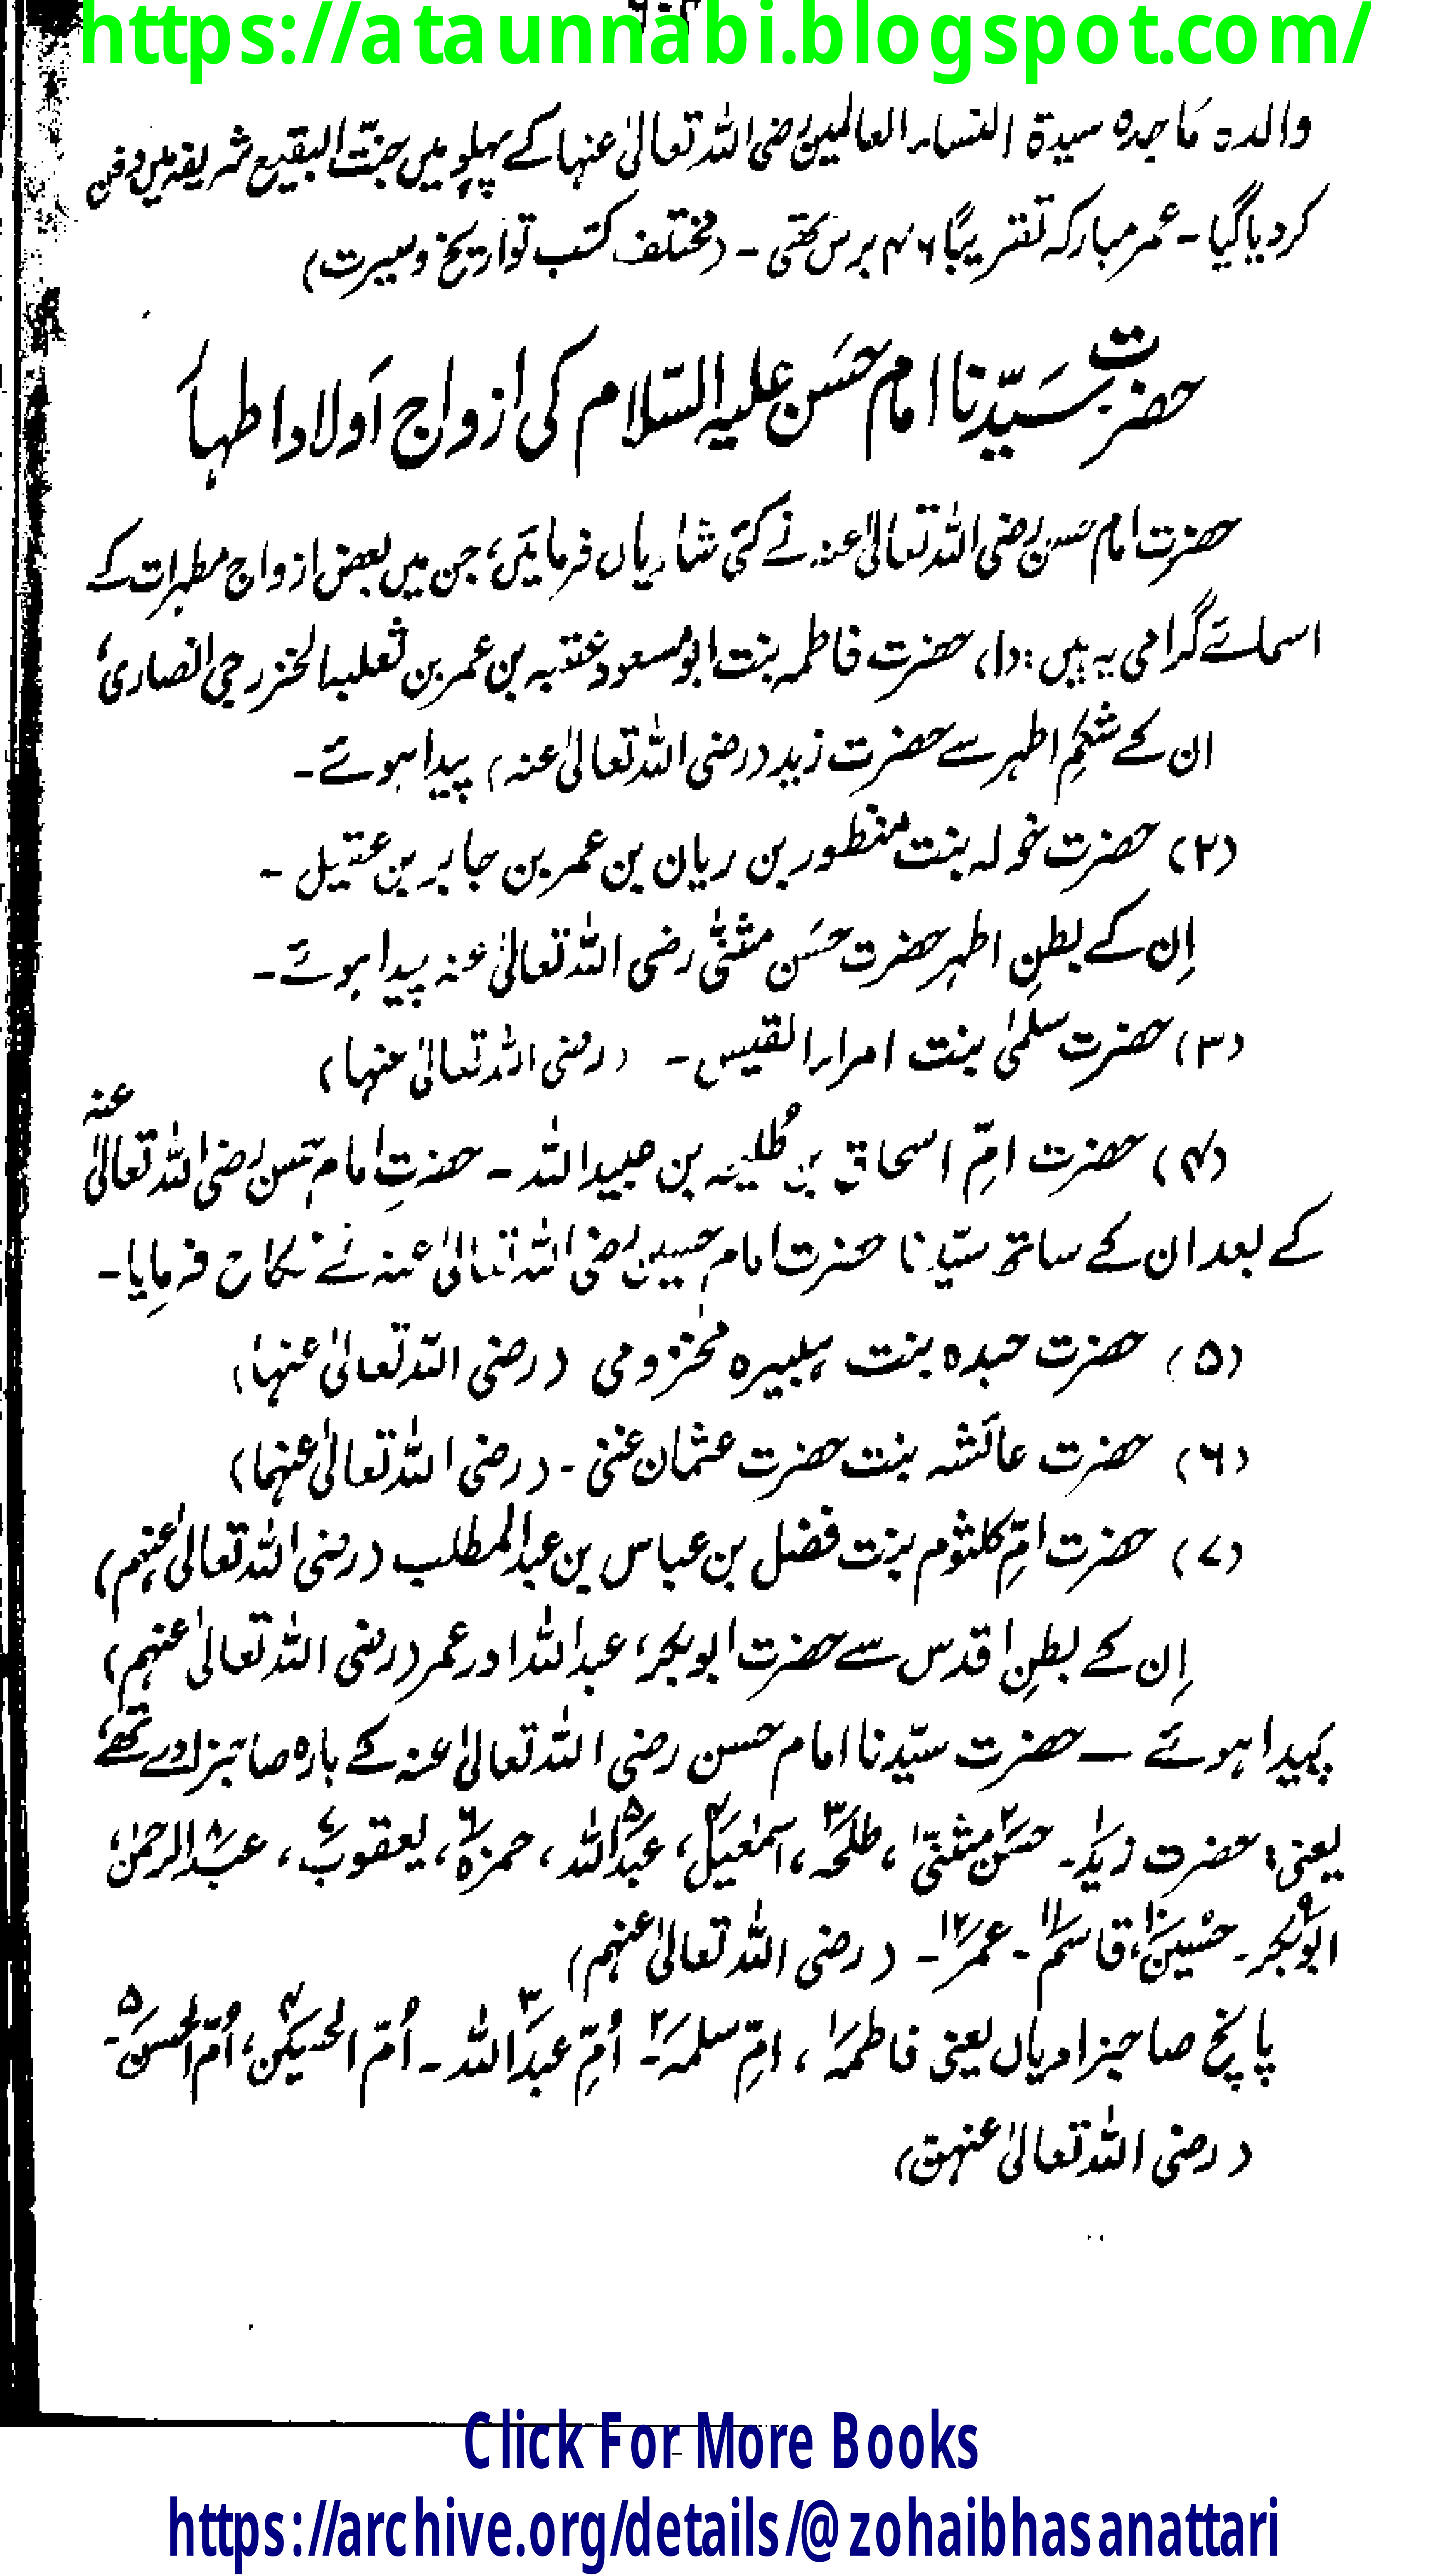 https://ataunnabi.blogspot.com/
والدہ ماجدہ سیدۃ النساء العالمین رضی اللہ تعالیٰ عنہا کے پہلو میں جنّت البقیع شریف میں دفن
کر دیا گیا۔ عمر مبارکہ تقریباً ۴۶ برس تھی۔ (مختلف کتب تواریخ و سیرت)
حضرت سیّدنا امام حسَن علیہ السّلام کی ازواج اَولاد اطہار
حضرت امام حسن رضی اللہ تعالیٰ عنہ نے کئی شادیاں فرمائیں، جن میں بعض ازواج مطہرات کے
اسمائے گرامی یہ ہیں: (۱) حضرت فاطمہ بنت ابو مسعود عتبہ بن عمر بن ثعلبہ الخزرجی انصاری،
ان کے شکمِ اطہر سے حضرت زید (رضی اللہ تعالیٰ عنہ) پیدا ہوئے۔
(۲) حضرت خولہ بنت منظور بن ریان بن عمر بن جابر بن عقیل۔
اِن کے بطنِ اطہر حضرت حسَن مثنّٰی رضی اللہ تعالیٰ عنہ پیدا ہوئے۔
(۳) حضرت سلمٰی بنت امراء القیس۔ (رضی اللہ تعالیٰ عنہا)
(۴) حضرت امِّ اسحاق بن طُلیحہ بن عبید اللہ۔ حضرتِ امام حسن رضی اللہ تعالیٰ عنہ
کے بعد ان کے ساتھ سیّدنا حضرت امام حسین رضی اللہ تعالیٰ عنہ نے نکاح فرمایا۔
(۵) حضرت حبدہ بنت ہلبیرہ مخزومی (رضی اللہ تعالیٰ عنہا)
(۶) حضرت عائشہ بنت حضرت عثمان غنی۔ (رضی اللہ تعالیٰ عنہما)
(۷) حضرت امِّ کلثوم بنت فضل بن عباس بن عبد المطلب (رضی اللہ تعالیٰ عنہم)
اِن کے بطنِ اقدس سے حضرت ابوبکر، عبد اللہ اور عمر (رضی اللہ تعالیٰ عنہم)
پیدا ہوئے — حضرت سیّدنا امام حسن رضی اللہ تعالیٰ عنہ کے بارہ صاحبزادے تھے،
یعنی: حضرت زید۱۔ حسَن مثنّیٰ۲، طلحہ۳، اسمٰعیل۴، عبد اللہ۵، حمزہ۶، یعقوب۷، عبد الرحمٰن۸،
ابوبکر۹۔ حسین۱۰، قاسم۱۱۔ عمر۱۲۔ (رضی اللہ تعالیٰ عنہم)
پانچ صاحبزادیاں یعنی فاطمہ۱، امِّ سلمہ۲۔ اُمِّ عبد اللہ۳۔ اُمّ الحسین۴، اُمّ الحسن۵۔
(رضی اللہ تعالیٰ عنہن)
Click For More Books
https://archive.org/details/@zohaibhasanattari